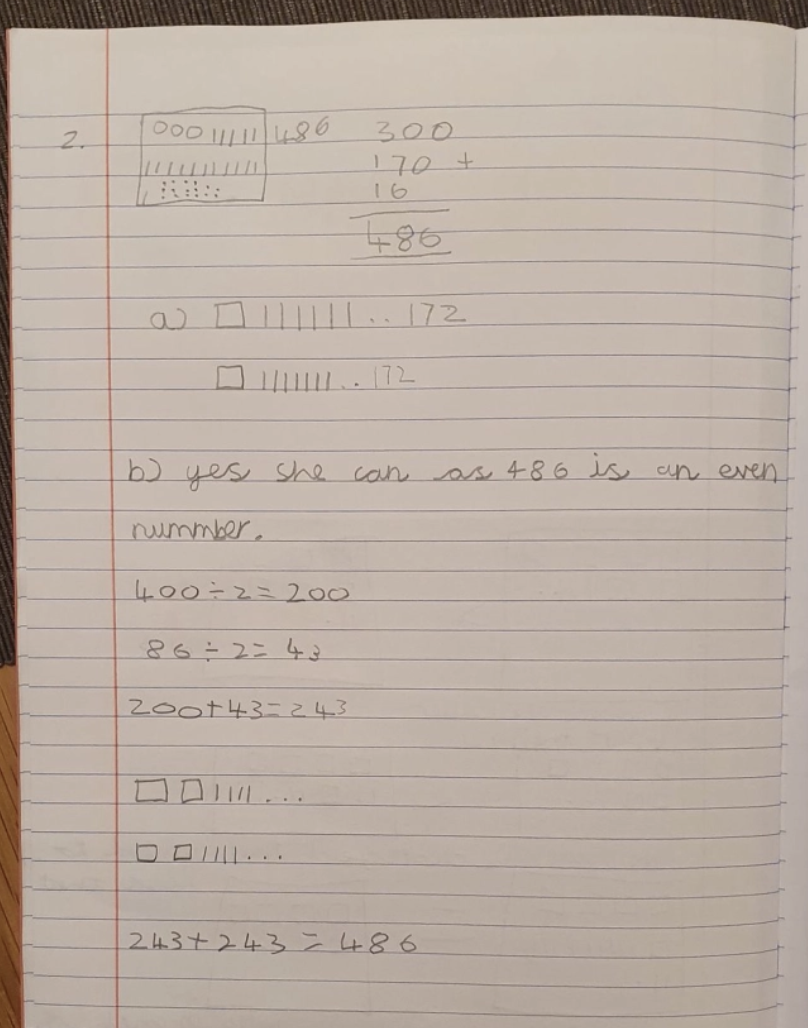 2. 000 11111 486 300
170 +
16
486
a) □ 1111111 .. 172
□ 1111111 .. 172
b) yes she can as 486 is an even
nummber.
400 ÷ 2 = 200
86 ÷ 2 = 43
200 + 43 = 243
□ □ 1111 ...
□ □ 1111 ...
243 + 243 = 486